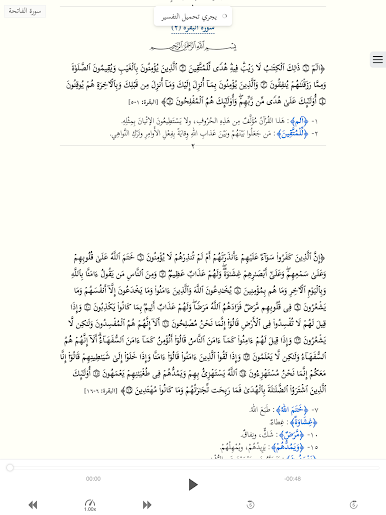 سورة الفاتحة
يجري تحميل التفسير
سورة البقرة (٢)
بِسْمِ ٱللَّهِ ٱلرَّحْمَٰنِ ٱلرَّحِيمِ
﴿الٓمٓ ۝١ ذَٰلِكَ ٱلْكِتَٰبُ لَا رَيْبَ فِيهِ هُدًى لِّلْمُتَّقِينَ ۝٢ ٱلَّذِينَ يُؤْمِنُونَ بِٱلْغَيْبِ وَيُقِيمُونَ ٱلصَّلَوٰةَ
وَمِمَّا رَزَقْنَٰهُمْ يُنفِقُونَ ۝٣ وَٱلَّذِينَ يُؤْمِنُونَ بِمَآ أُنزِلَ إِلَيْكَ وَمَآ أُنزِلَ مِن قَبْلِكَ وَبِٱلْـَٔاخِرَةِ هُمْ يُوقِنُونَ
۝٤ أُو۟لَٰٓئِكَ عَلَىٰ هُدًى مِّن رَّبِّهِمْ وَأُو۟لَٰٓئِكَ هُمُ ٱلْمُفْلِحُونَ ۝٥﴾ [البقرة: ١-٥]
١- ﴿الٓمٓ﴾: هَذا القُرْآنُ مُؤَلَّفٌ مِن هَذِهِ الحُرُوفِ، ولا يَسْتَطِيعُونَ الإتْيانَ بِمِثْلِهِ.
٢- ﴿لِّلْمُتَّقِينَ﴾: مَن جَعَلُوا بَيْنَهُمْ وبَيْنَ عَذابِ اللَّهِ وِقايَةً بِفِعْلِ الأَوامِرِ وتَرْكِ النَّواهِي.
٢
﴿إِنَّ ٱلَّذِينَ كَفَرُوا۟ سَوَآءٌ عَلَيْهِمْ ءَأَنذَرْتَهُمْ أَمْ لَمْ تُنذِرْهُمْ لَا يُؤْمِنُونَ ۝٦ خَتَمَ ٱللَّهُ عَلَىٰ قُلُوبِهِمْ
وَعَلَىٰ سَمْعِهِمْ وَعَلَىٰٓ أَبْصَٰرِهِمْ غِشَٰوَةٌ وَلَهُمْ عَذَابٌ عَظِيمٌ ۝٧ وَمِنَ ٱلنَّاسِ مَن يَقُولُ ءَامَنَّا بِٱللَّهِ
وَبِٱلْيَوْمِ ٱلْـَٔاخِرِ وَمَا هُم بِمُؤْمِنِينَ ۝٨ يُخَٰدِعُونَ ٱللَّهَ وَٱلَّذِينَ ءَامَنُوا۟ وَمَا يَخْدَعُونَ إِلَّآ أَنفُسَهُمْ وَمَا
يَشْعُرُونَ ۝٩ فِى قُلُوبِهِم مَّرَضٌ فَزَادَهُمُ ٱللَّهُ مَرَضًا وَلَهُمْ عَذَابٌ أَلِيمٌۢ بِمَا كَانُوا۟ يَكْذِبُونَ ۝١٠ وَإِذَا
قِيلَ لَهُمْ لَا تُفْسِدُوا۟ فِى ٱلْأَرْضِ قَالُوٓا۟ إِنَّمَا نَحْنُ مُصْلِحُونَ ۝١١ أَلَآ إِنَّهُمْ هُمُ ٱلْمُفْسِدُونَ وَلَٰكِن لَّا
يَشْعُرُونَ ۝١٢ وَإِذَا قِيلَ لَهُمْ ءَامِنُوا۟ كَمَآ ءَامَنَ ٱلنَّاسُ قَالُوٓا۟ أَنُؤْمِنُ كَمَآ ءَامَنَ ٱلسُّفَهَآءُ أَلَآ إِنَّهُمْ هُمُ
ٱلسُّفَهَآءُ وَلَٰكِن لَّا يَعْلَمُونَ ۝١٣ وَإِذَا لَقُوا۟ ٱلَّذِينَ ءَامَنُوا۟ قَالُوٓا۟ ءَامَنَّا وَإِذَا خَلَوْا۟ إِلَىٰ شَيَٰطِينِهِمْ قَالُوٓا۟ إِنَّا
مَعَكُمْ إِنَّمَا نَحْنُ مُسْتَهْزِءُونَ ۝١٤ ٱللَّهُ يَسْتَهْزِئُ بِهِمْ وَيَمُدُّهُمْ فِى طُغْيَٰنِهِمْ يَعْمَهُونَ ۝١٥ أُو۟لَٰٓئِكَ
ٱلَّذِينَ ٱشْتَرَوُا۟ ٱلضَّلَٰلَةَ بِٱلْهُدَىٰ فَمَا رَبِحَت تِّجَٰرَتُهُمْ وَمَا كَانُوا۟ مُهْتَدِينَ ۝١٦﴾ [البقرة: ٦-١٦]
٧- ﴿خَتَمَ اللَّهُ﴾: طَبَعَ اللَّهُ.
﴿غِشَاوَةٌ﴾: غِطاءٌ.
١٠- ﴿مَّرَضٌ﴾: شَكٌّ، ونِفاقٌ.
١٥- ﴿وَيَمُدُّهُمْ﴾: يَزِيدُهُمْ، ويُمْهِلُهُمْ.
00:00
-00:46
1.00x
5
5